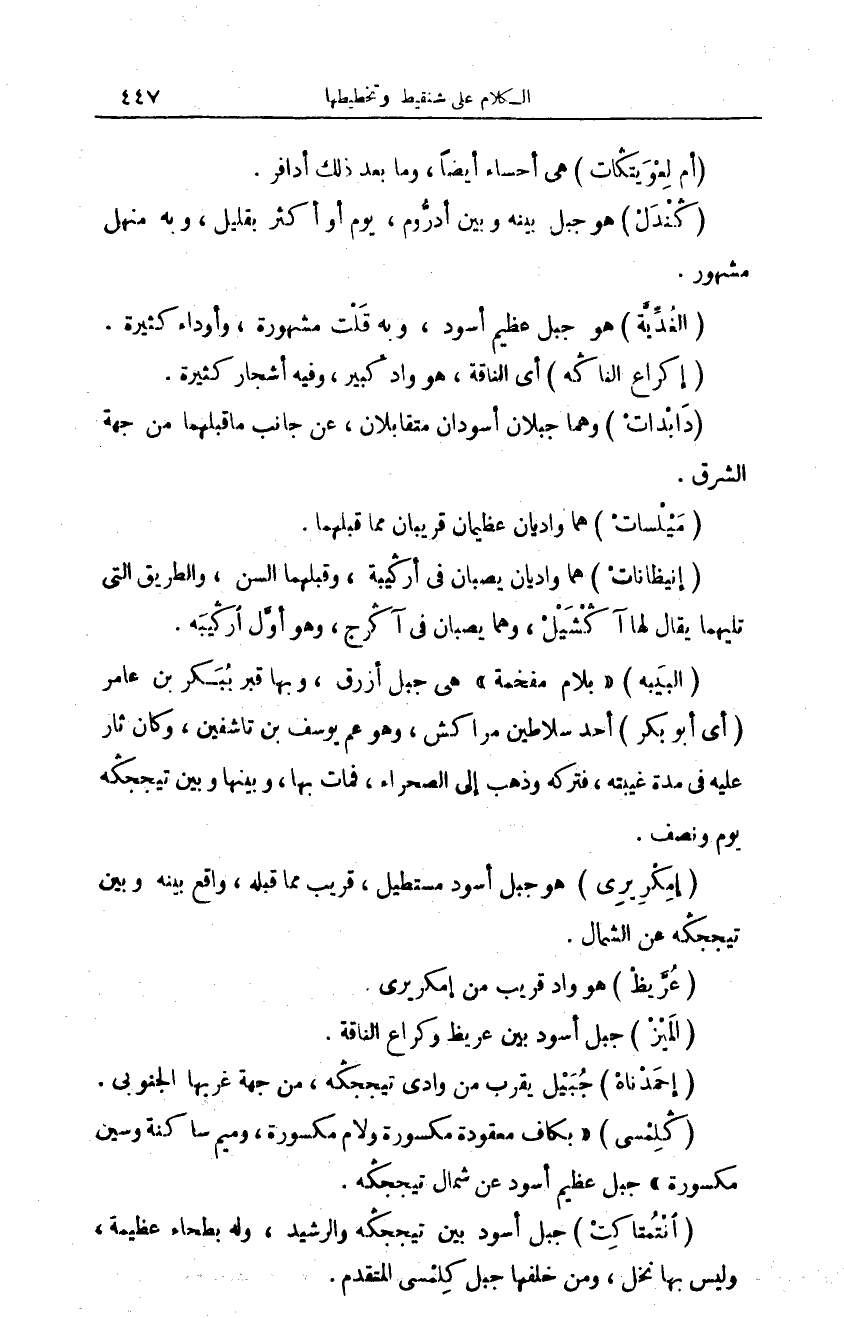 الكلام على شنقيط وتخطيطها ٤٤٧
(أم لِعْوَيتݣات) هى أحساء أيضاً، وما بعد ذلك أدافر.
(ݣُنْدَلْ) هو جبل بينه وبين أدرُّوم، يوم أو أكثر بقليل، وبه منهل
مشهور.
(الغُدِّيَّة) هو جبل عظيم أسود، وبه قَلْت مشهورة، وأوداء كثيرة.
(إكراع الناݣه) أى الناقة، هو واد كبير، وفيه أشجار كثيرة.
(دَابْدات) وهما جبلان أسودان متقابلان، عن جانب ماقبلهما من جهة
الشرق.
(مَيْلْسات) هما واديان عظيمان قريبان مما قبلهما.
(إنيظانات) هما واديان يصبان فى أرݣيبة، وقبلهما السن، والطريق التى
تليهما يقال لها آݣْشَيَلْ، وهما يصبان فى آݣرج، وهو أوَّل أرݣيبَه.
(البَيبه) «بلام مفخمة» هى جبل أزرق، وبها قبر بُبَسكر بن عامر
(أى أبو بكر) أحد سلاطين مراكش، وهو عم يوسف بن تاشفين، وكان ثار
عليه فى مدة غيبته، فتركه وذهب إلى الصحراء، فمات بها، وبينها وبين تيججݣه
يوم ونصف.
(إمݣْرِيرِى) هو جبل أسود مستطيل، قريب مما قبله، واقع بينه وبين
تيججݣه عن الشمال.
(عُرَّيظْ) هو واد قريب من إمكريرى.
(لَمْيْزْ) جبل أسود بين عريظ وكراع الناقة.
(إحَمدْناهْ) جُبَيْل يقرب من وادى تيججݣه، من جهة غربها الجنوبى.
(ݣِلِمْسى) «بكاف معقودة مكسورة ولام مكسورة، وميم ساكنة وسين
مكسورة» جبل عظيم أسود عن شمال تيججݣه.
(اَنْتُمْتاكِتْ) جبل أسود بين تيججݣه والرشيد، وله بطحاء عظيمة،
وليس بها نخل، ومن خلفها جبل ݣلِمْسى المتقدم.